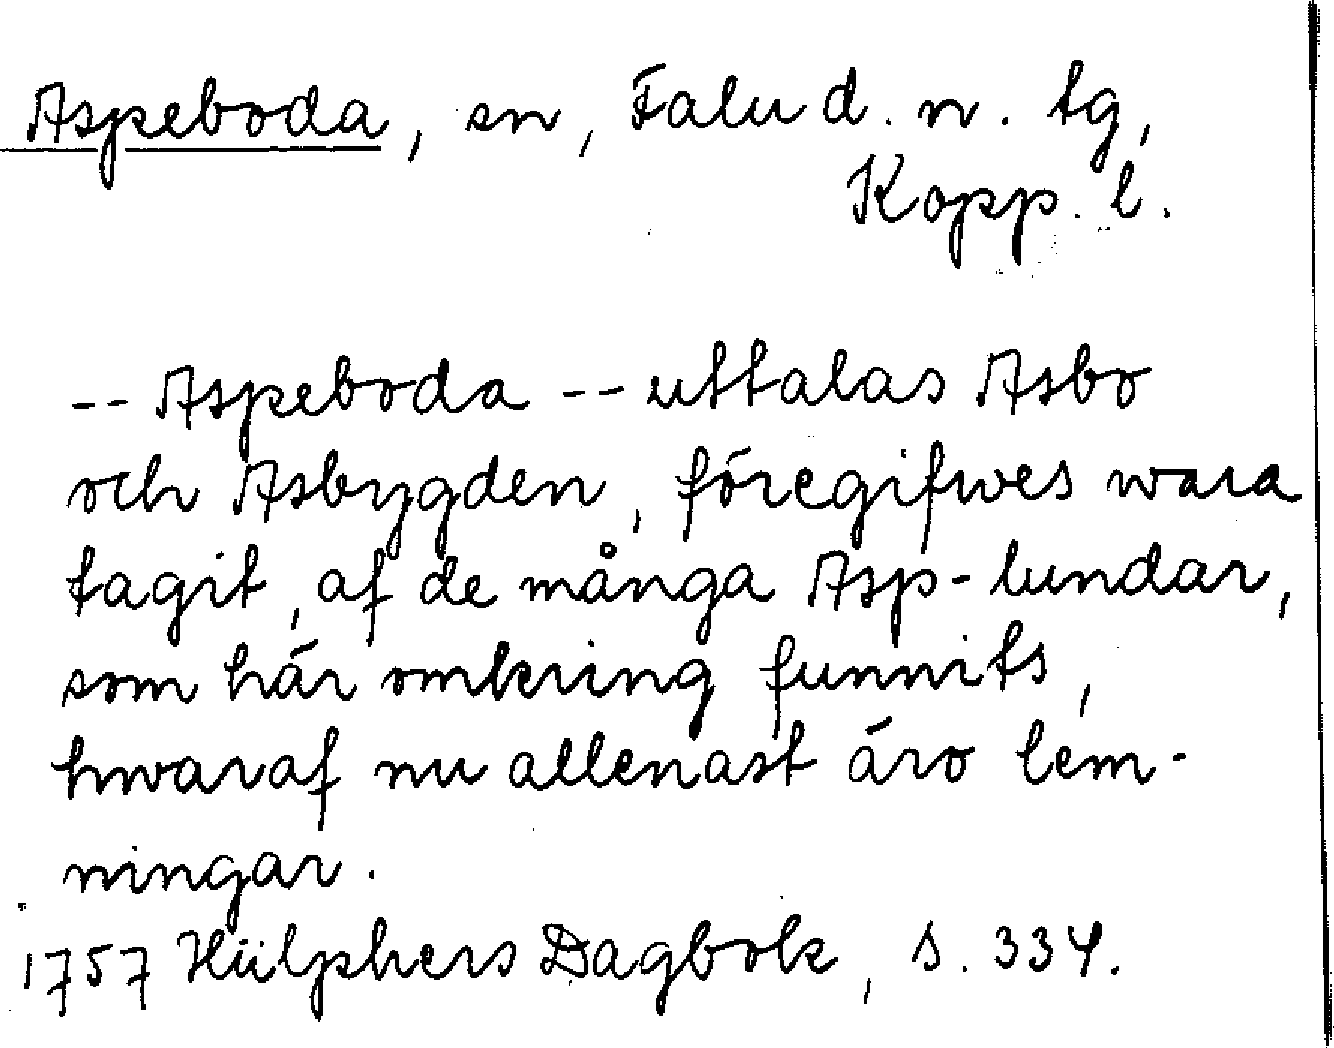 Aspeboda, sn, Falu d. n. tg,
Kopp. l.
-- Aspeboda -- uttalas Asbo
och Asbygden, föregifwes wara
tagit, af de många Asp-lundar,
som här omkring funnits,
hwaraf nu allenast äro lem-
ningar.
1757 Hülphers Dagbok, s. 334.